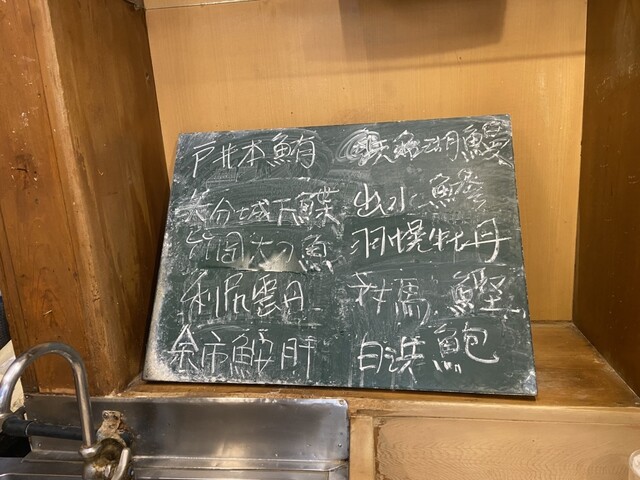 戸井本鮪
大分城下鰈
竹岡太刀魚
利尻雲丹
余市鮟肝
浜名湖鰻
出水 鯵
羽幌牡丹
対馬 鰹
白浜 鮑